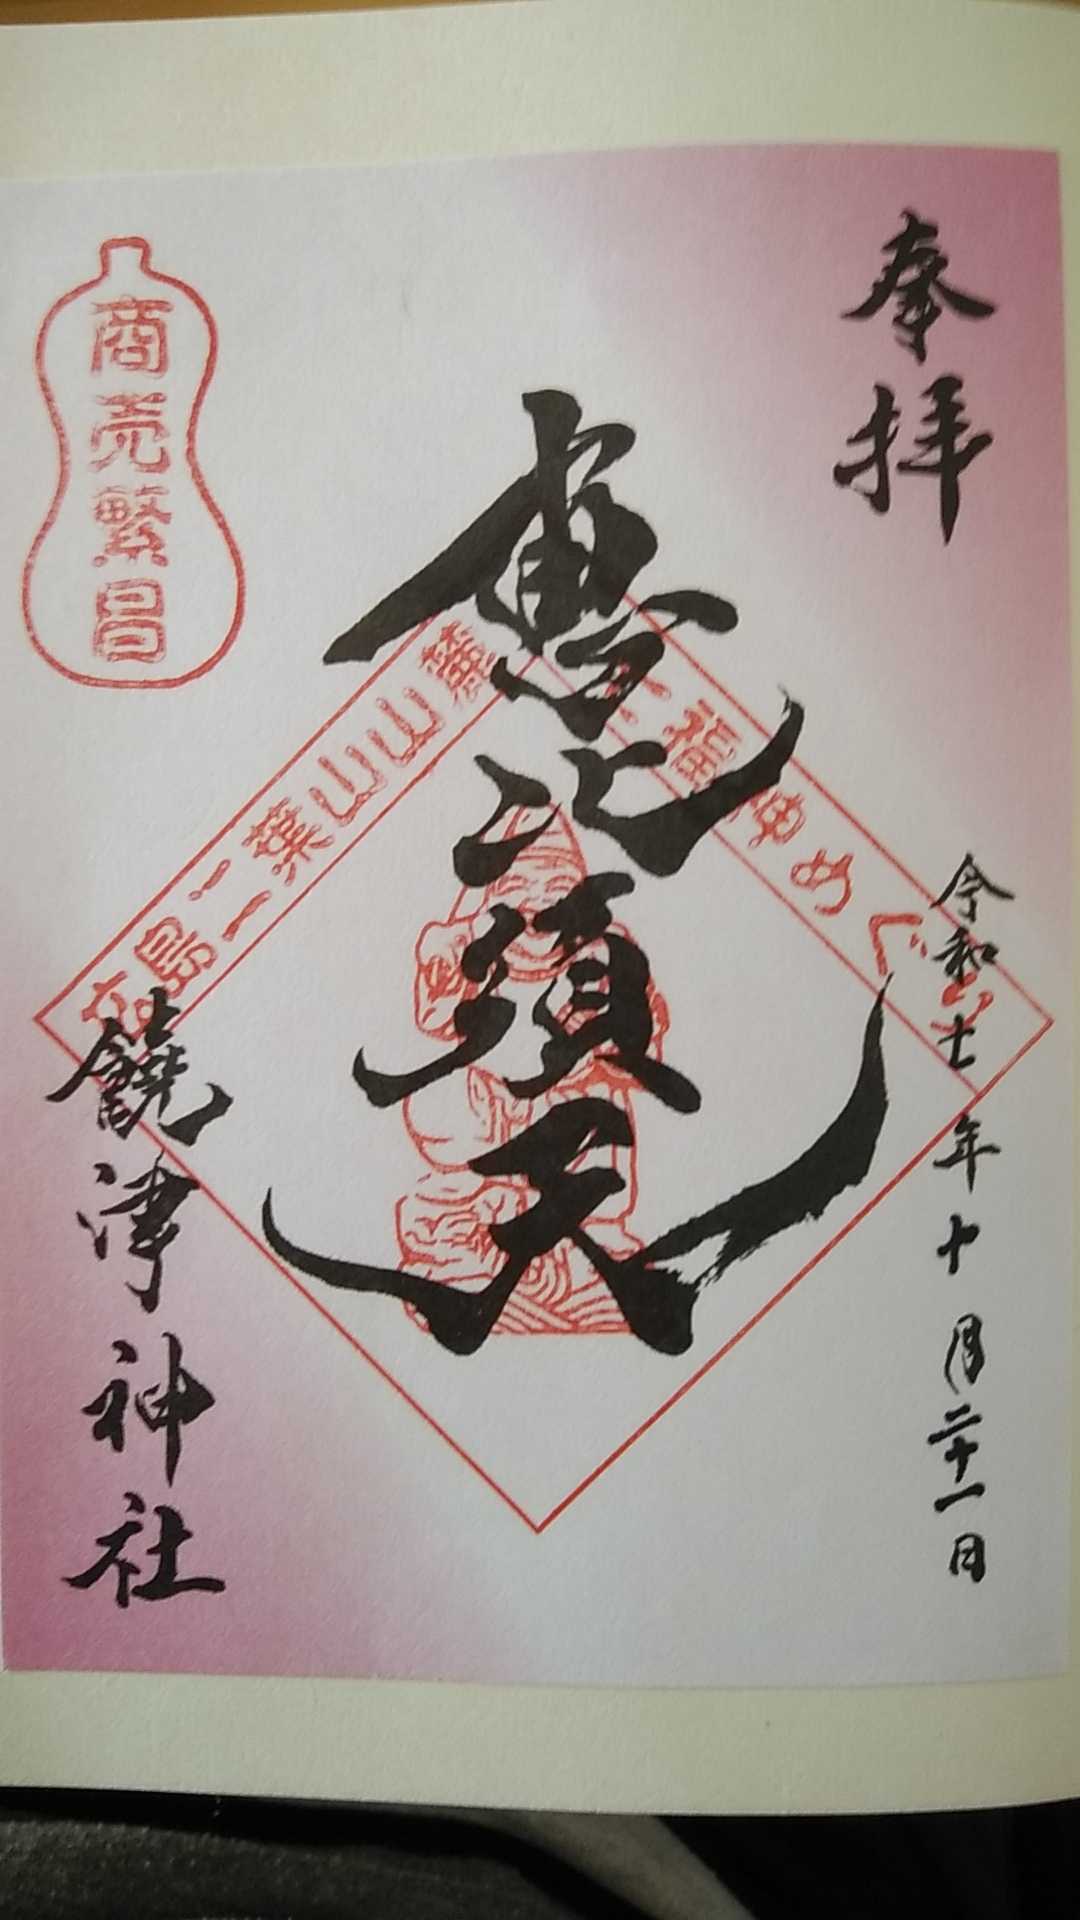 奉拝
令和七年十月二十一日
恵比須天
広島二葉山山麓
七福神めぐり
商売繁昌
饒津神社